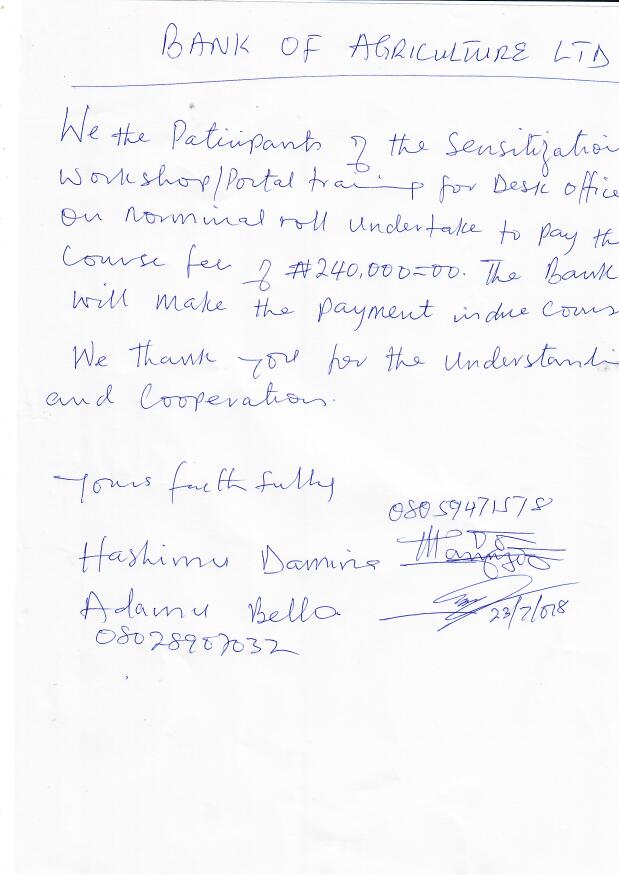 BANK OF AGRICULTURE LTD
We the Paticipants of the Sensitization
Workshop/Portal training for Desk office
on norminal roll undertake to pay th
Course fee of ₦240,000=00. The Bank
will make the payment indue Cours
We thank you for the understandi
and Cooperation.
Yours faithfully
08059471578
Hashimu Damina
Adamu Bello
23/7/018
08028907032